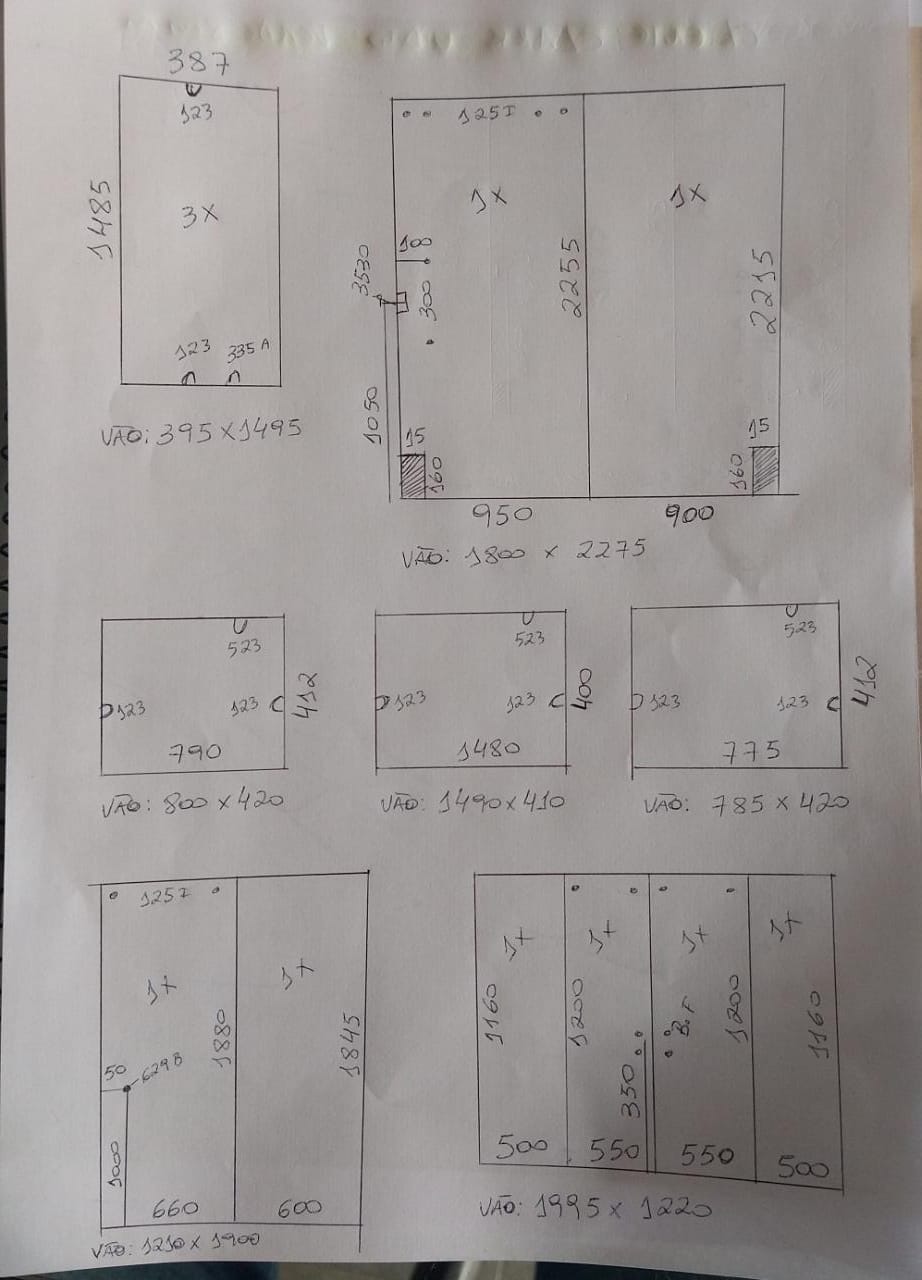 387
123
1485
3X
123 335A
VÃO: 395 X 1495
125I
1X 1X
100
3530
300
2255
2215
1050
15
160
15
160
950 900
VÃO: 1800 X 2275
523
123 123
412
790
VÃO: 800 X 420
523
123 123
400
1480
VÃO: 1490 X 410
523
123 123
412
775
VÃO: 785 X 420
125I
1X 1X
1880
1845
50
629B
1000
660 600
VÃO: 1210 X 1900
1X 1X 1X 1X
1160
1200
B.F
1200
1160
350
500 550 550 500
VÃO: 1995 X 1220